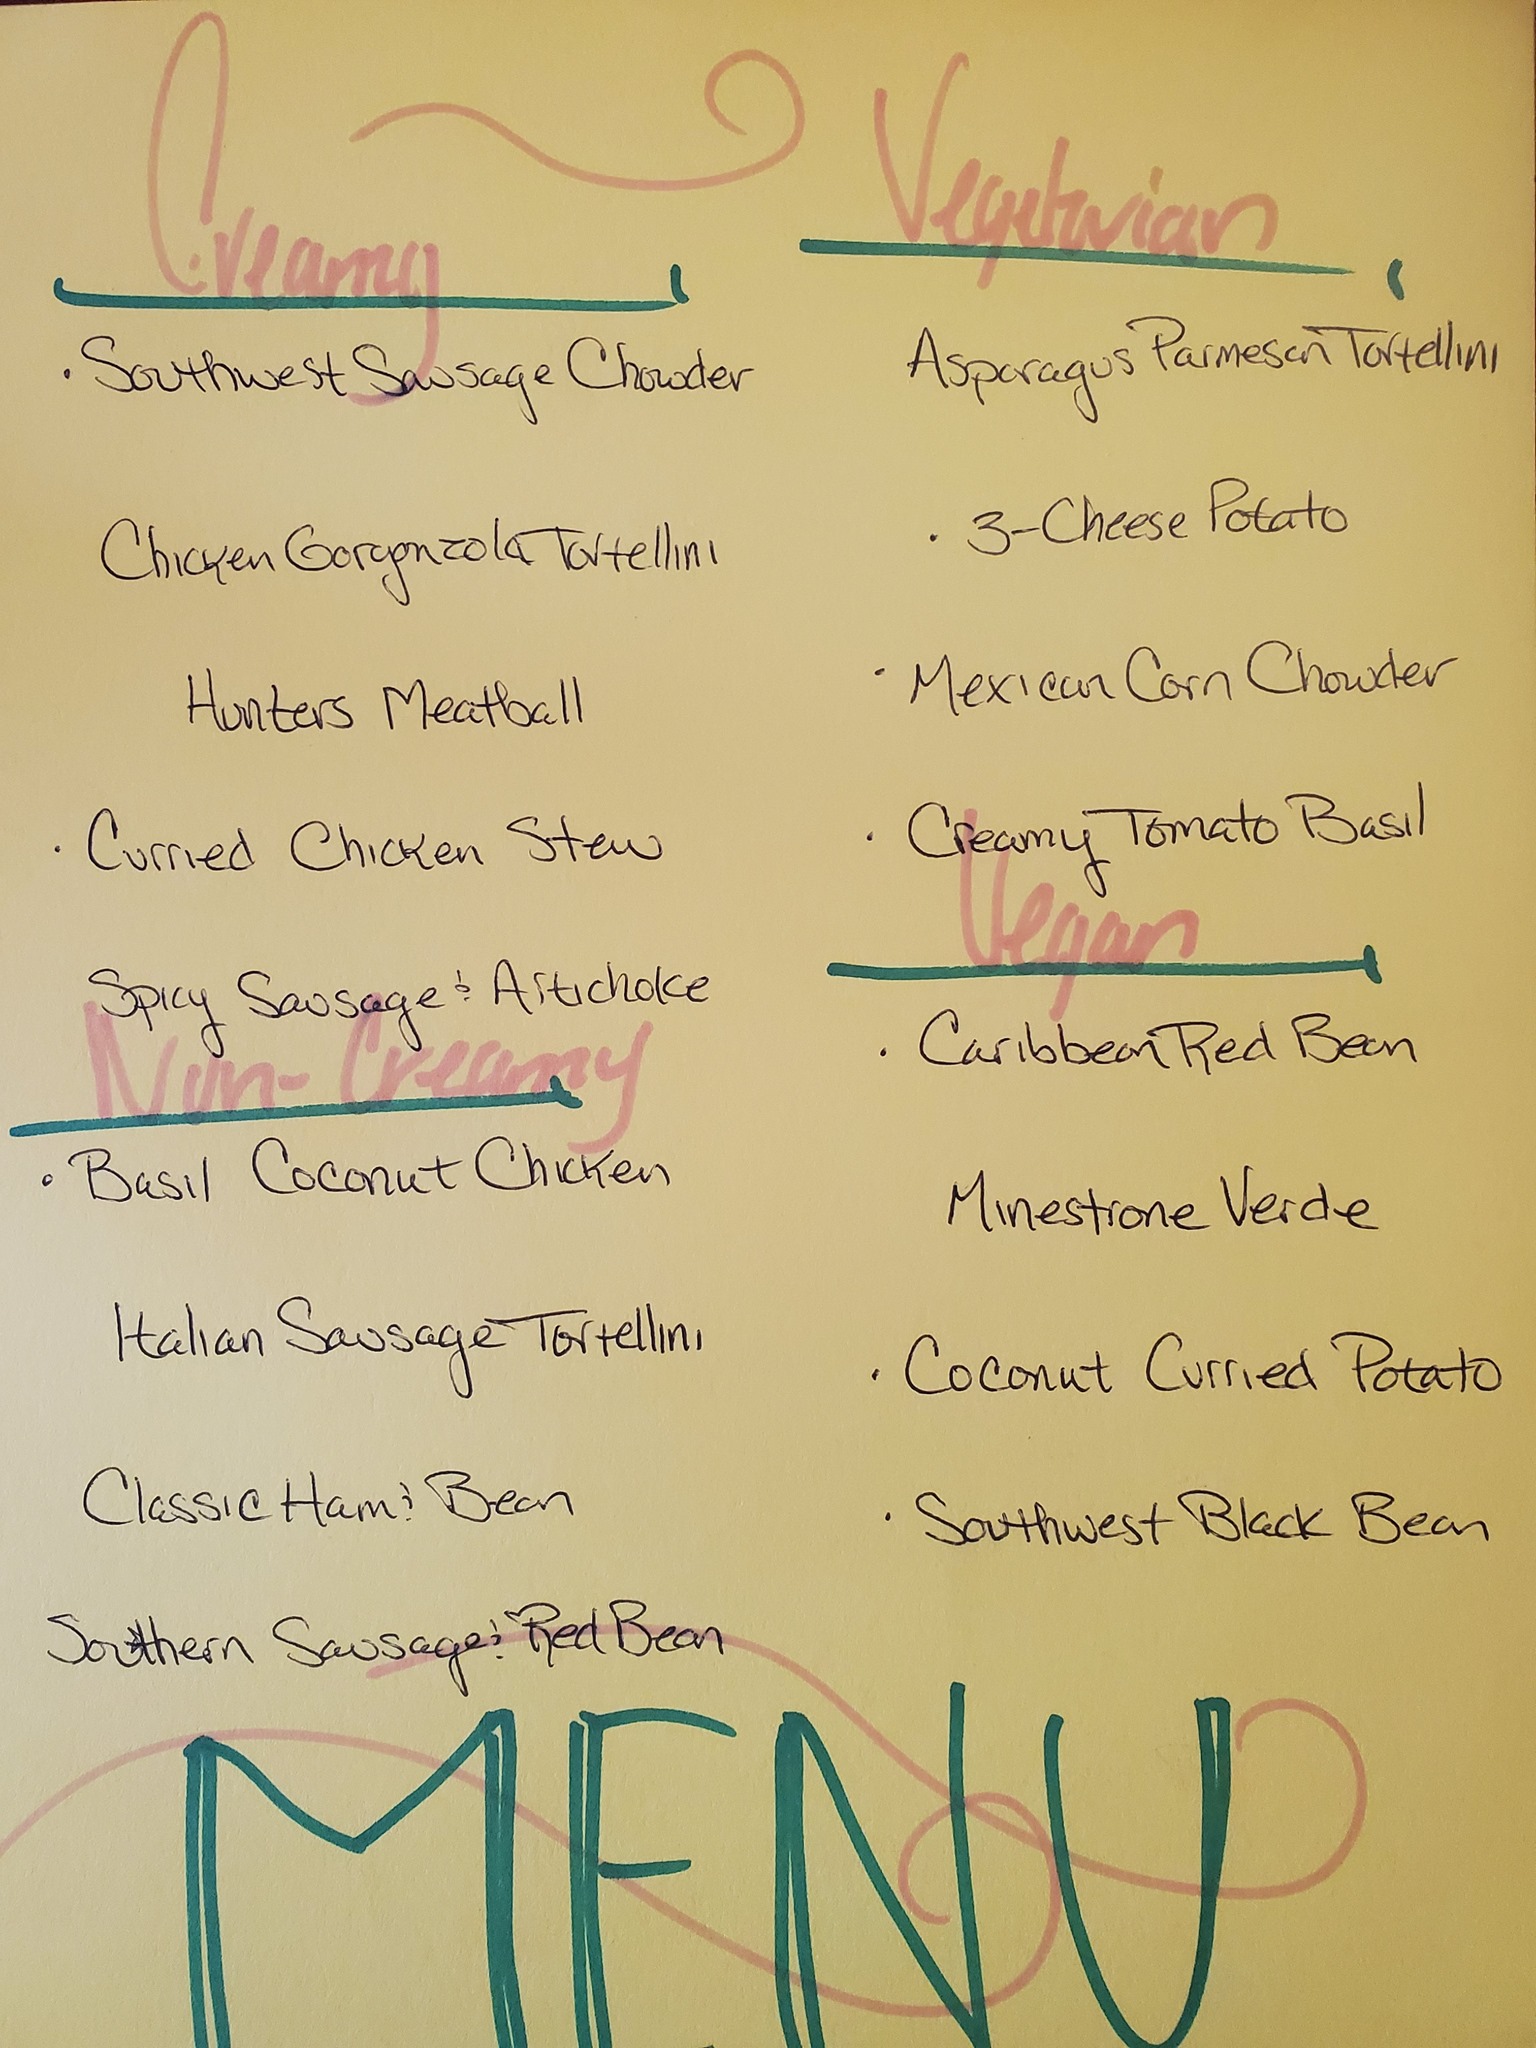 Creamy
· Southwest Sausage Chowder
Chicken Gorgonzola Tortellini
Hunters Meatball
· Curried Chicken Stew
Spicy Sausage & Artichoke
Non-Creamy
· Basil Coconut Chicken
Italian Sausage Tortellini
Classic Ham & Bean
Southern Sausage & Red Bean
Vegetarian
Asparagus Parmesan Tortellini
· 3-Cheese Potato
· Mexican Corn Chowder
· Creamy Tomato Basil
Vegan
· Caribbean Red Bean
Minestrone Verde
· Coconut Curried Potato
· Southwest Black Bean
MENU